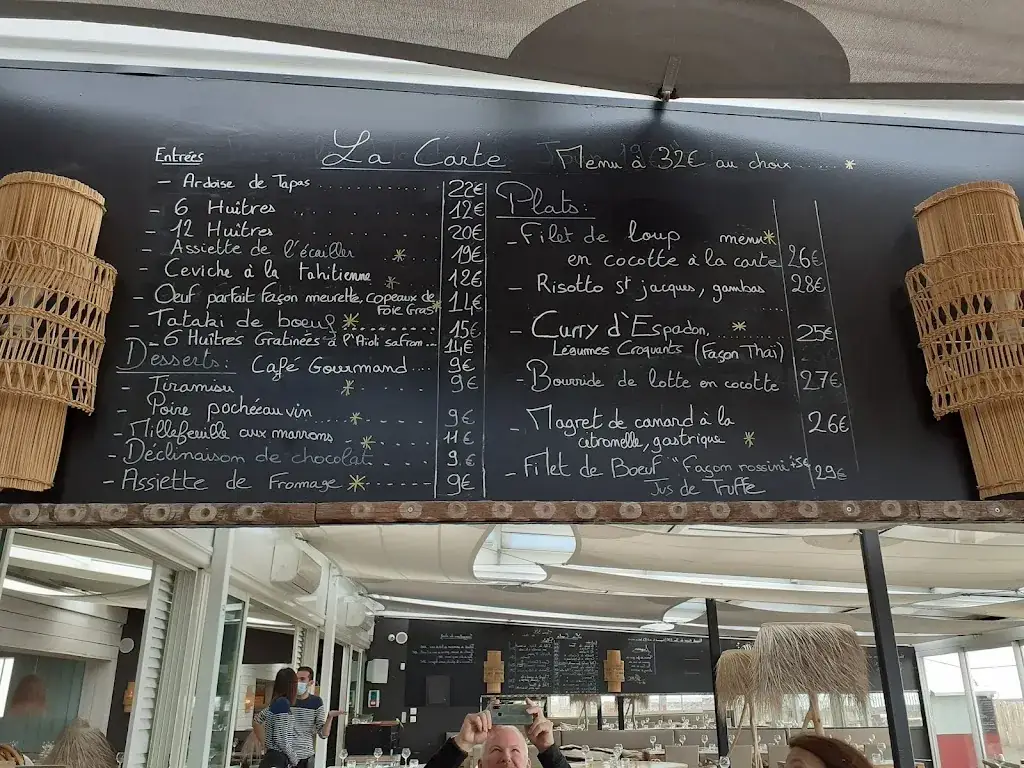 La Carte
Menu à 32€ au choix ..... *
Entrées
- Ardoise de Tapas ........ 22€
- 6 Huîtres ........ 12€
- 12 Huîtres ........ 20€
- Assiette de l'écailler * 19€
- Ceviche à la tahitienne * 12€
- Oeuf parfait façon meurette, copeaux de
Foie Gras* 14€
- Tataki de boeuf * ........ 15€
- 6 Huîtres Gratinées à l'Aïoli safran... 14€
Desserts: Café Gourmand .... 9€
- Tiramisu * 9€
- Poire pochée au vin * 9€
- Millefeuille aux marrons * 11€
- Déclinaison de chocolat 9€
- Assiette de Fromage * 9€
Plats:
- Filet de loup menu*
en cocotte à la carte 26€
- Risotto st jacques, gambas 28€
- Curry d'Espadon, * 25€
Légumes Croquants (Façon Thaï)
- Bourride de lotte en cocotte 27€
- Magret de canard à la 26€
citronelle, gastrique *
- Filet de Boeuf "Façon rossini +5€ 29€
Jus de Truffe